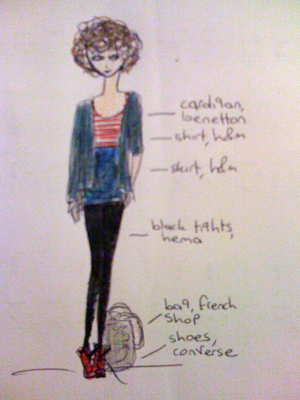 cardigan,
benetton
shirt, h&m
skirt, h&m
black tights,
hema
bag, french
shop
shoes,
converse